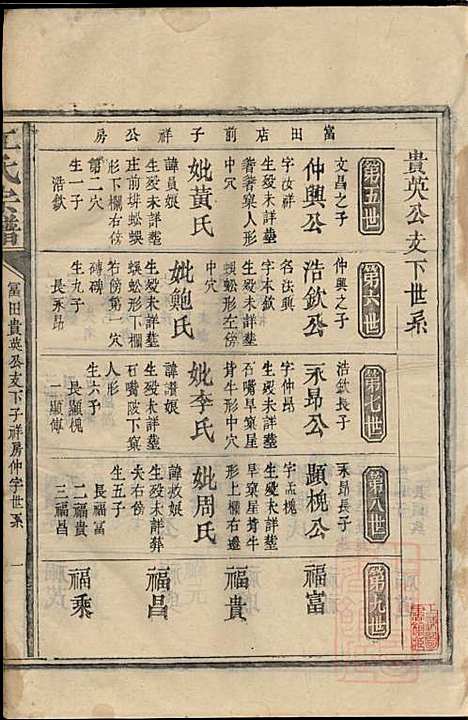 貴英公支下世系
富田店前子祥公房
第五世
文昌之子
仲興公
字汝祥
生歿未詳塟
著著窠人形
中穴
妣黃氏
諱員娘
生歿未詳塟
庄前坳蜈蚣
形下欄右傍
第二穴
生一子
浩欽
第六世
仲興之子
浩欽公
名法興
字本欽
生歿未詳塟
蜈蚣形左傍
中穴
妣鮑氏
生歿未詳塟
蜈蚣形下欄
右傍第一穴
磚碑
生九子
長永昂
第七世
浩欽長子
永昂公
字仲昂
生歿未詳塟
石嘴旱窠星
背牛形中穴
妣李氏
諱讚娘
生歿未詳塟
石嘴陂下窠
人形
生六子
長顯槐
二顯傳
第八世
永昂長子
顯槐公
字孟槐
生歿未詳塟
旱窠星背牛
形上欄右邊
妣周氏
諱政娘
生歿未詳葬
夫右傍
生五子
長福富
二福貴
三福昌
第九世
福富
福貴
福昌
福乘
富田貴英公支下子祥房仲字世系
一